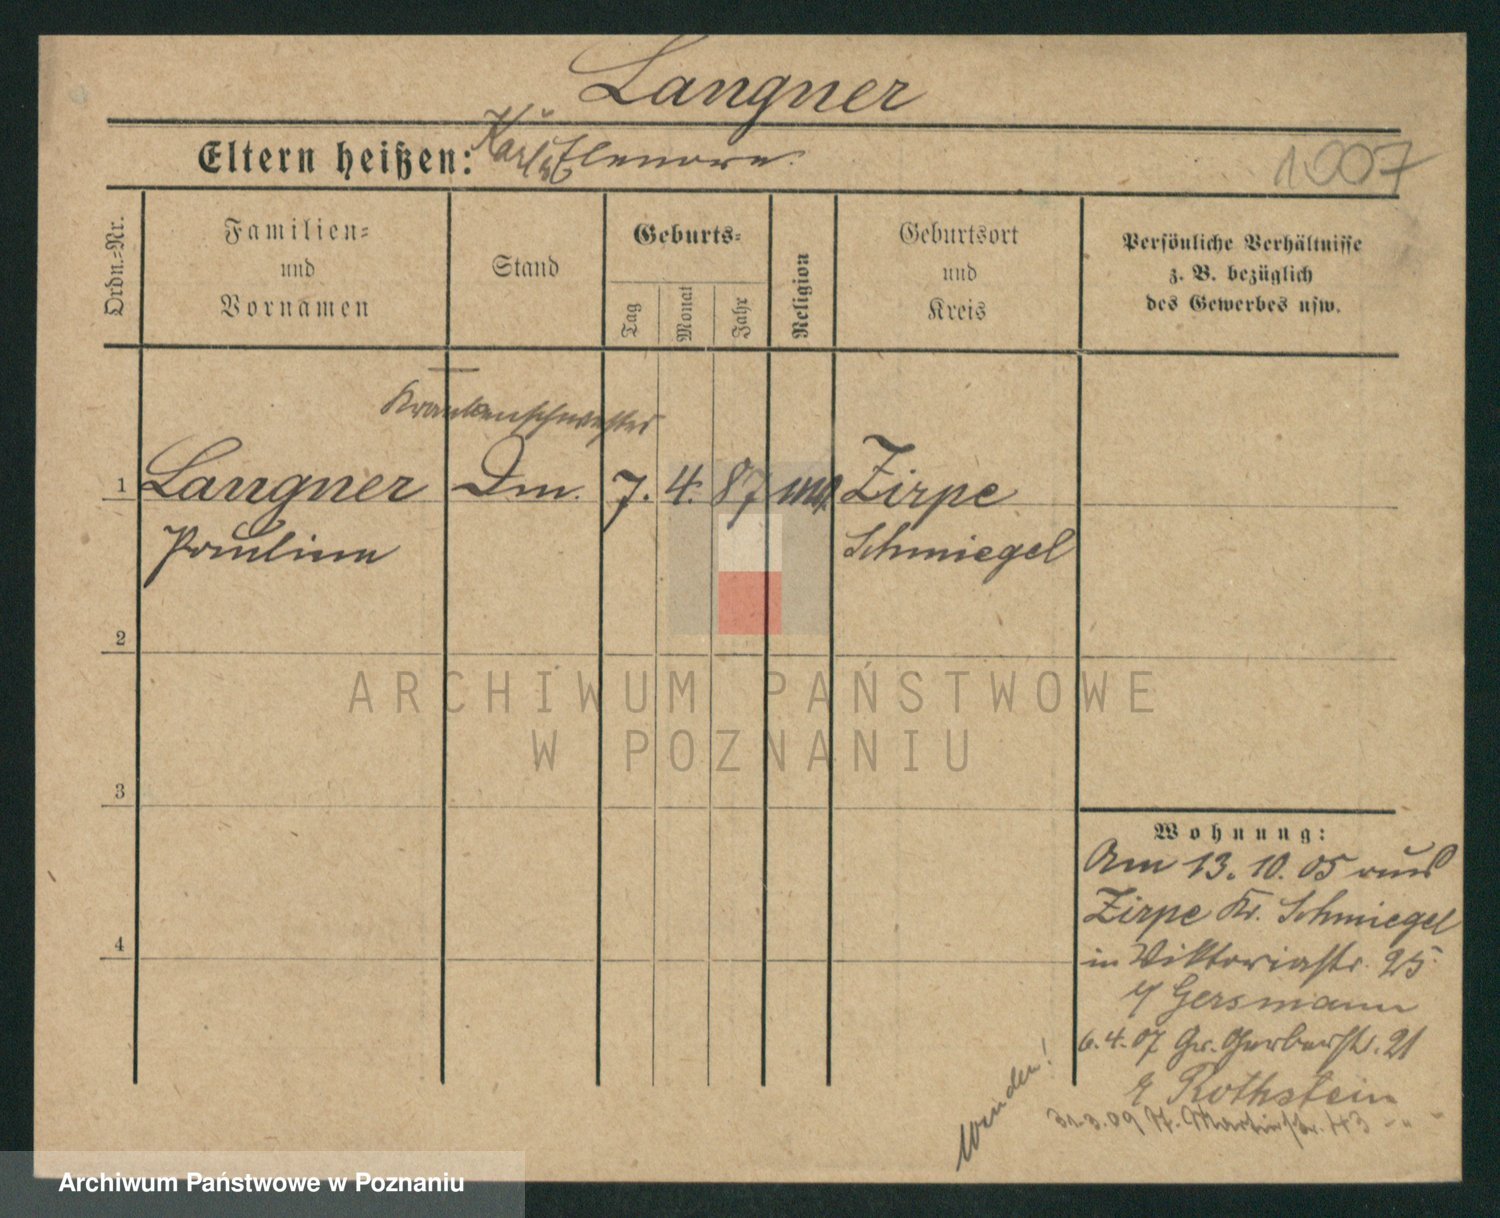 Langner
Eltern heißen: Karl u Elenore
1007
Ordn.-Nr.
Familien-
und
Vornamen
Stand
Geburts-
Tag
Monat
Jahr
Religion
Geburtsort
und
Kreis
Persönliche Verhältnisse
z. B. bezüglich
des Gewerbes usw.
Krankenschwester
1 Langner Dm. 7. 4. 87 Zirpe
Pauline Schmiegel
2
3
4
Wohnung:
Am 13. 10. 05 aus
Zirpe Kr. Schmiegel
in Viktoriastr. 25
Gersmann
6. 4. 07 Gr. Gerberstr. 21
Rothstein
31.3.09 St. Martinstr. 43 - „ -
Wenden!
ARCHIWUM PAŃSTWOWE
W POZNANIU
Archiwum Państwowe w Poznaniu